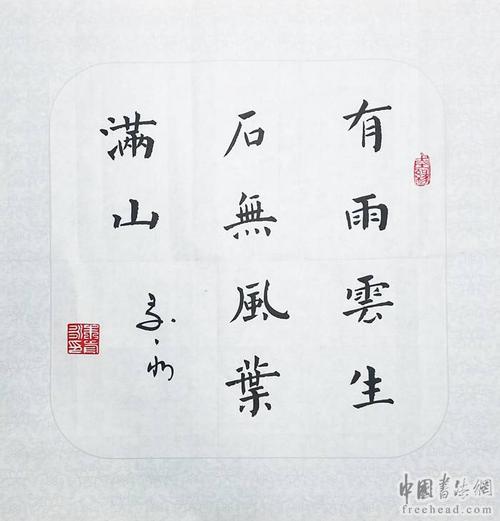 有雨雲生
石無風葉
滿山
中國書法網
freehead.com